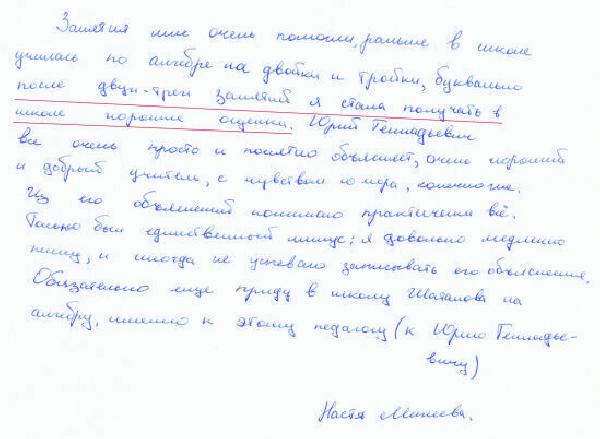 Занятия мне очень помогли, раньше в школе
училась по алгебре на двойки и тройки, буквально
после двух-трех занятий я стала получать в
школе хорошие оценки. Юрий Геннадьевич
все очень просто и понятно объясняет, очень хороший
и добрый учитель, с чувством юмора, конечно же.
Из его объяснений понимаю практически всё.
Только был единственный минус: я довольно медленно
пишу, и иногда не успеваю записывать его объяснения.
Обязательно еще приду в школу Шаталова на
алгебру, именно к этому педагогу (к Юрию Геннадье-
вичу)
Настя